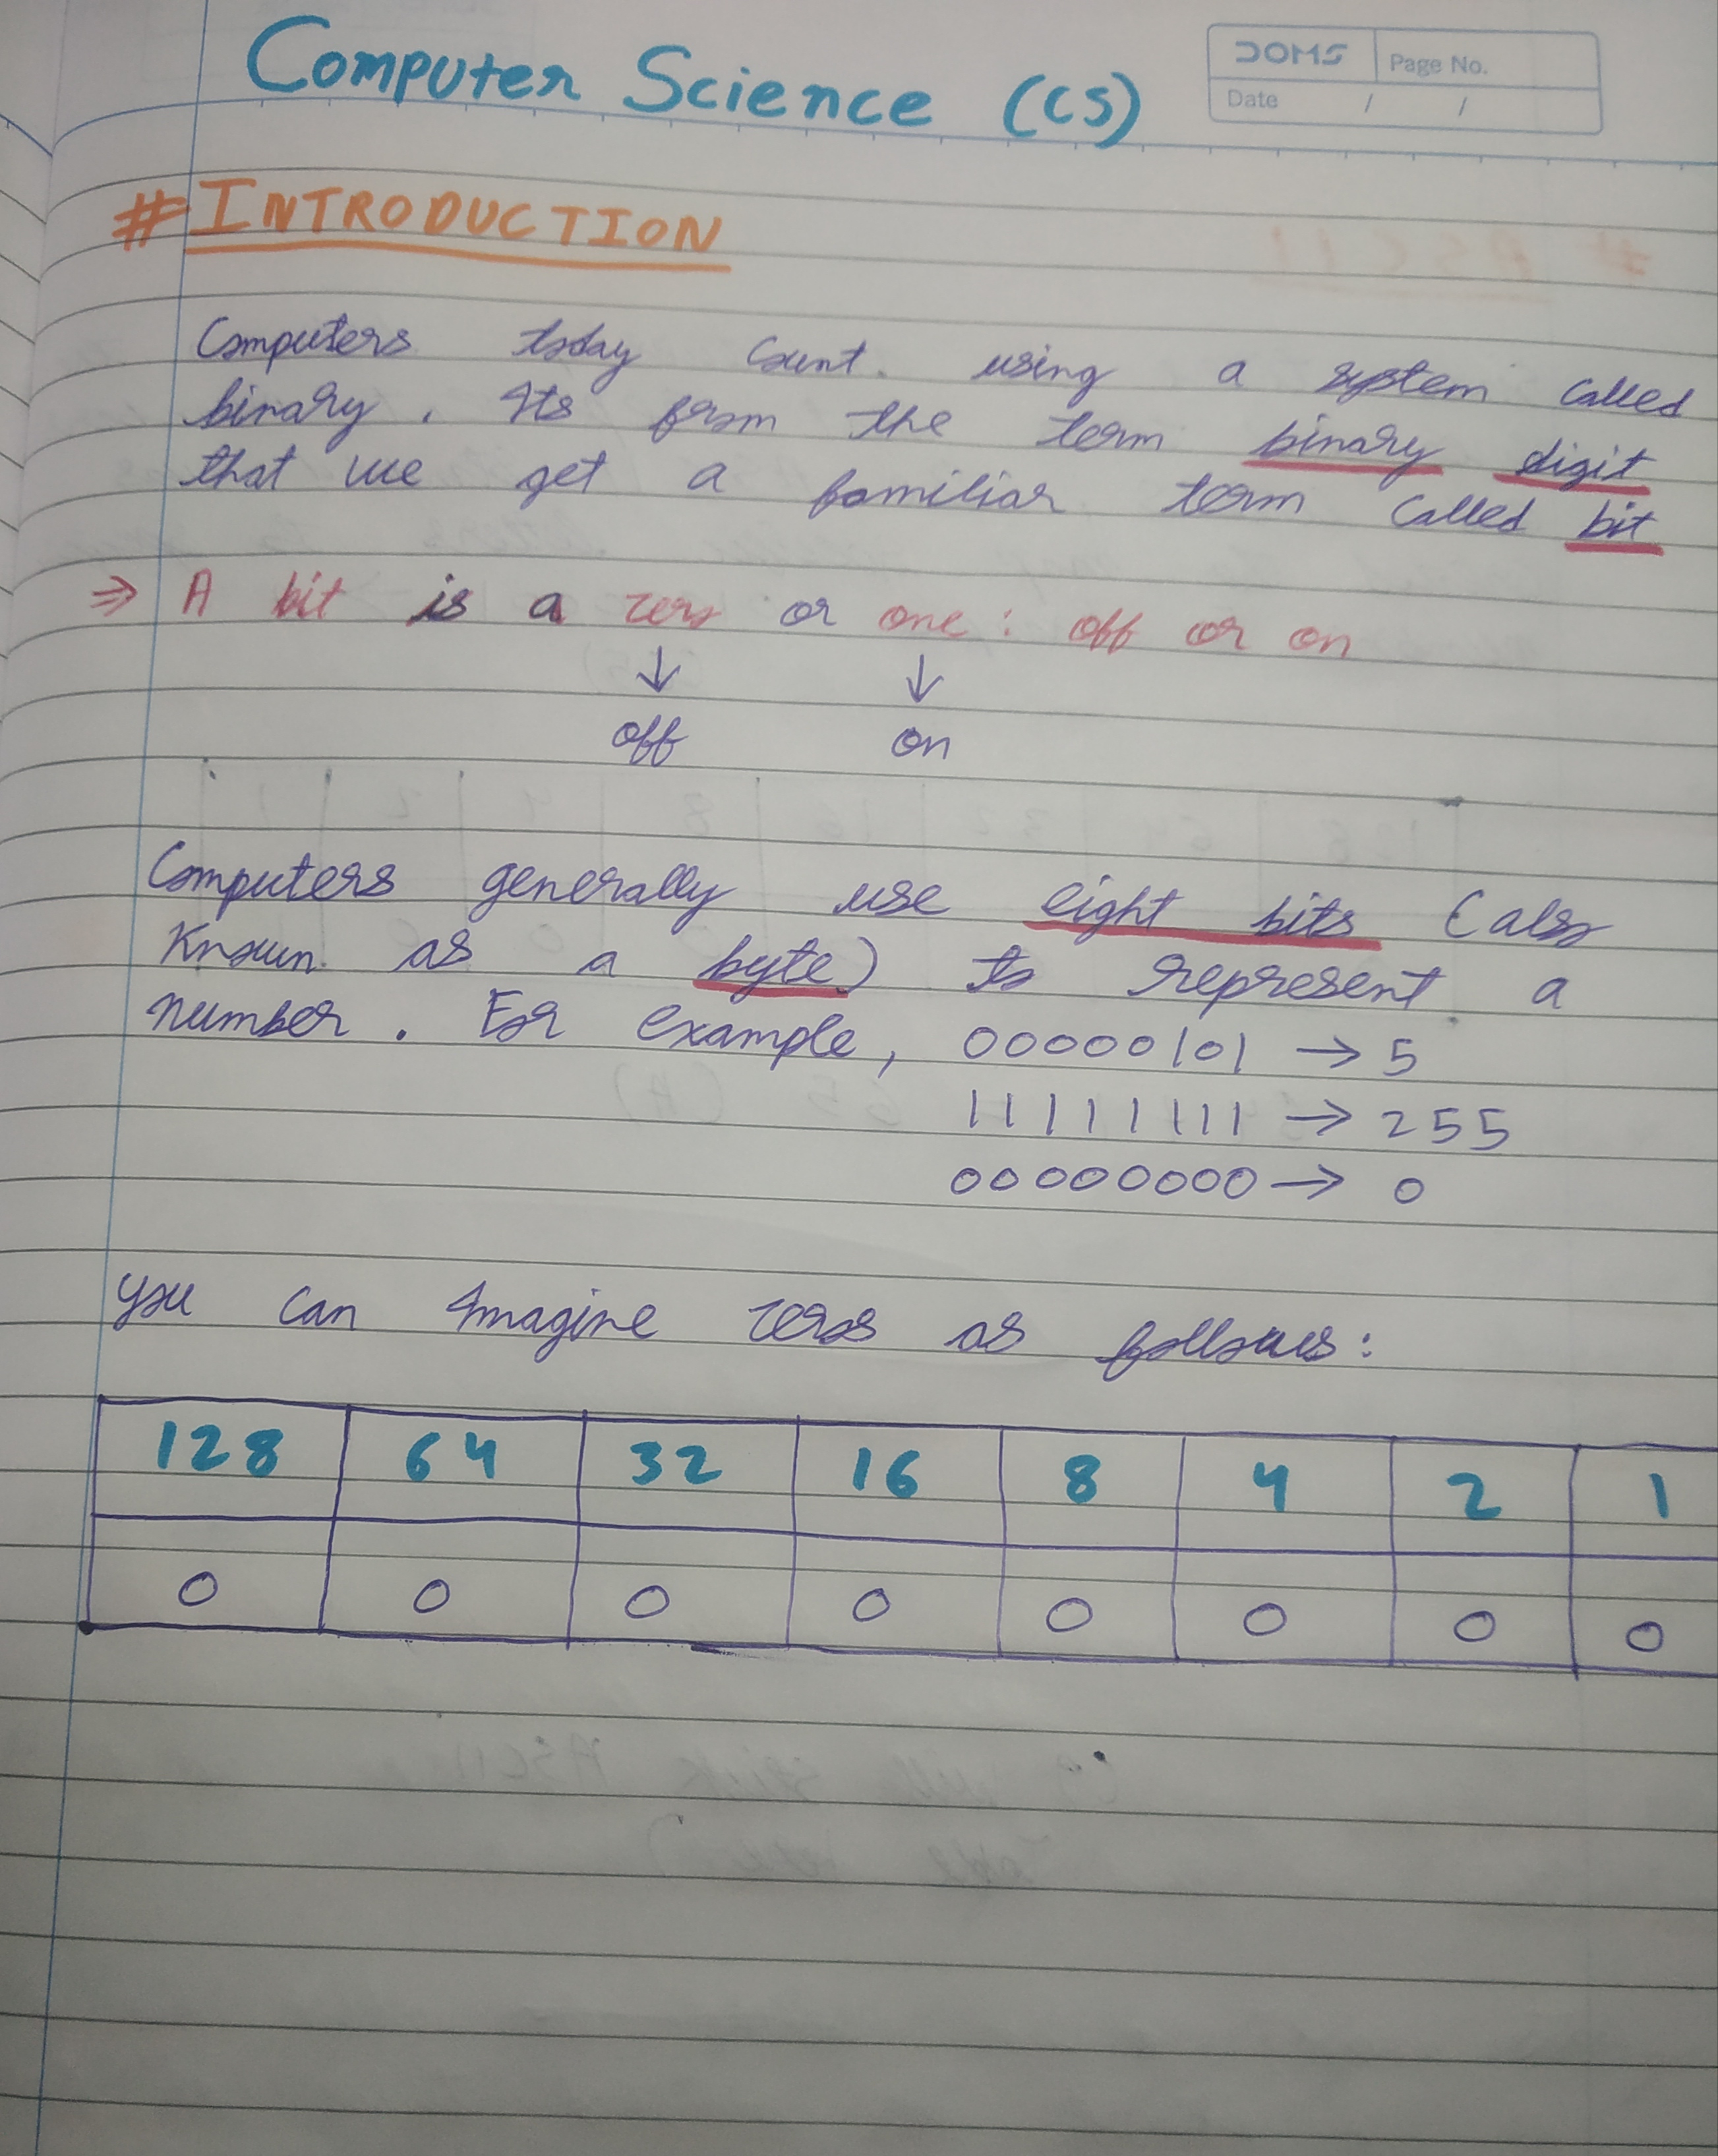 Computer Science (CS)
DOMS Page No.
Date / /
# INTRODUCTION
Computers today count using a system called
binary. Its from the term binary digit
that we get a familiar term called bit
⇒ A bit is a zero or one : off or on
↓ ↓
off on
Computers generally use eight bits (also
Known as a byte) to represent a
number. For example, 00000101 → 5
11111111 → 255
00000000 → 0
you can Imagine zeros as follows:
128 64 32 16 8 4 2 1
0 0 0 0 0 0 0 0